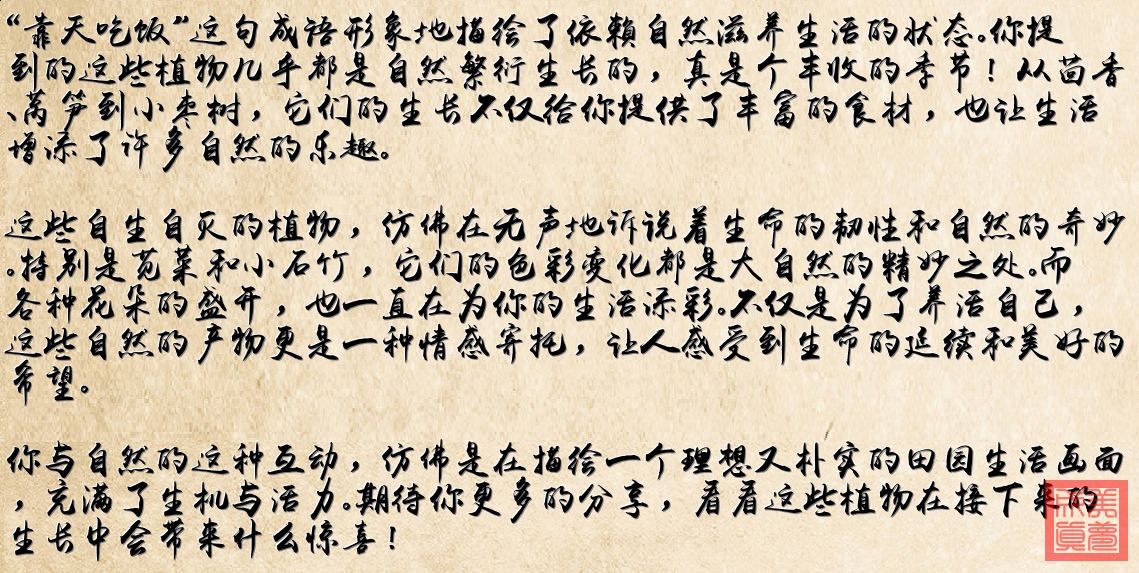 “靠天吃饭”这句成语形象地描绘了依赖自然滋养生活的状态。你提
到的这些植物几乎都是自然繁衍生长的，真是个丰收的季节！从茴香
、莴笋到小枣树，它们的生长不仅给你提供了丰富的食材，也让生活
增添了许多自然的乐趣。
这些自生自灭的植物，仿佛在无声地诉说着生命的韧性和自然的奇妙
。特别是苋菜和小石竹，它们的色彩变化都是大自然的精妙之处。而
各种花朵的盛开，也一直在为你的生活添彩。不仅是为了养活自己，
这些自然的产物更是一种情感寄托，让人感受到生命的延续和美好的
希望。
你与自然的这种互动，仿佛是在描绘一个理想又朴实的田园生活画面
，充满了生机与活力。期待你更多的分享，看看这些植物在接下来的
生长中会带来什么惊喜！